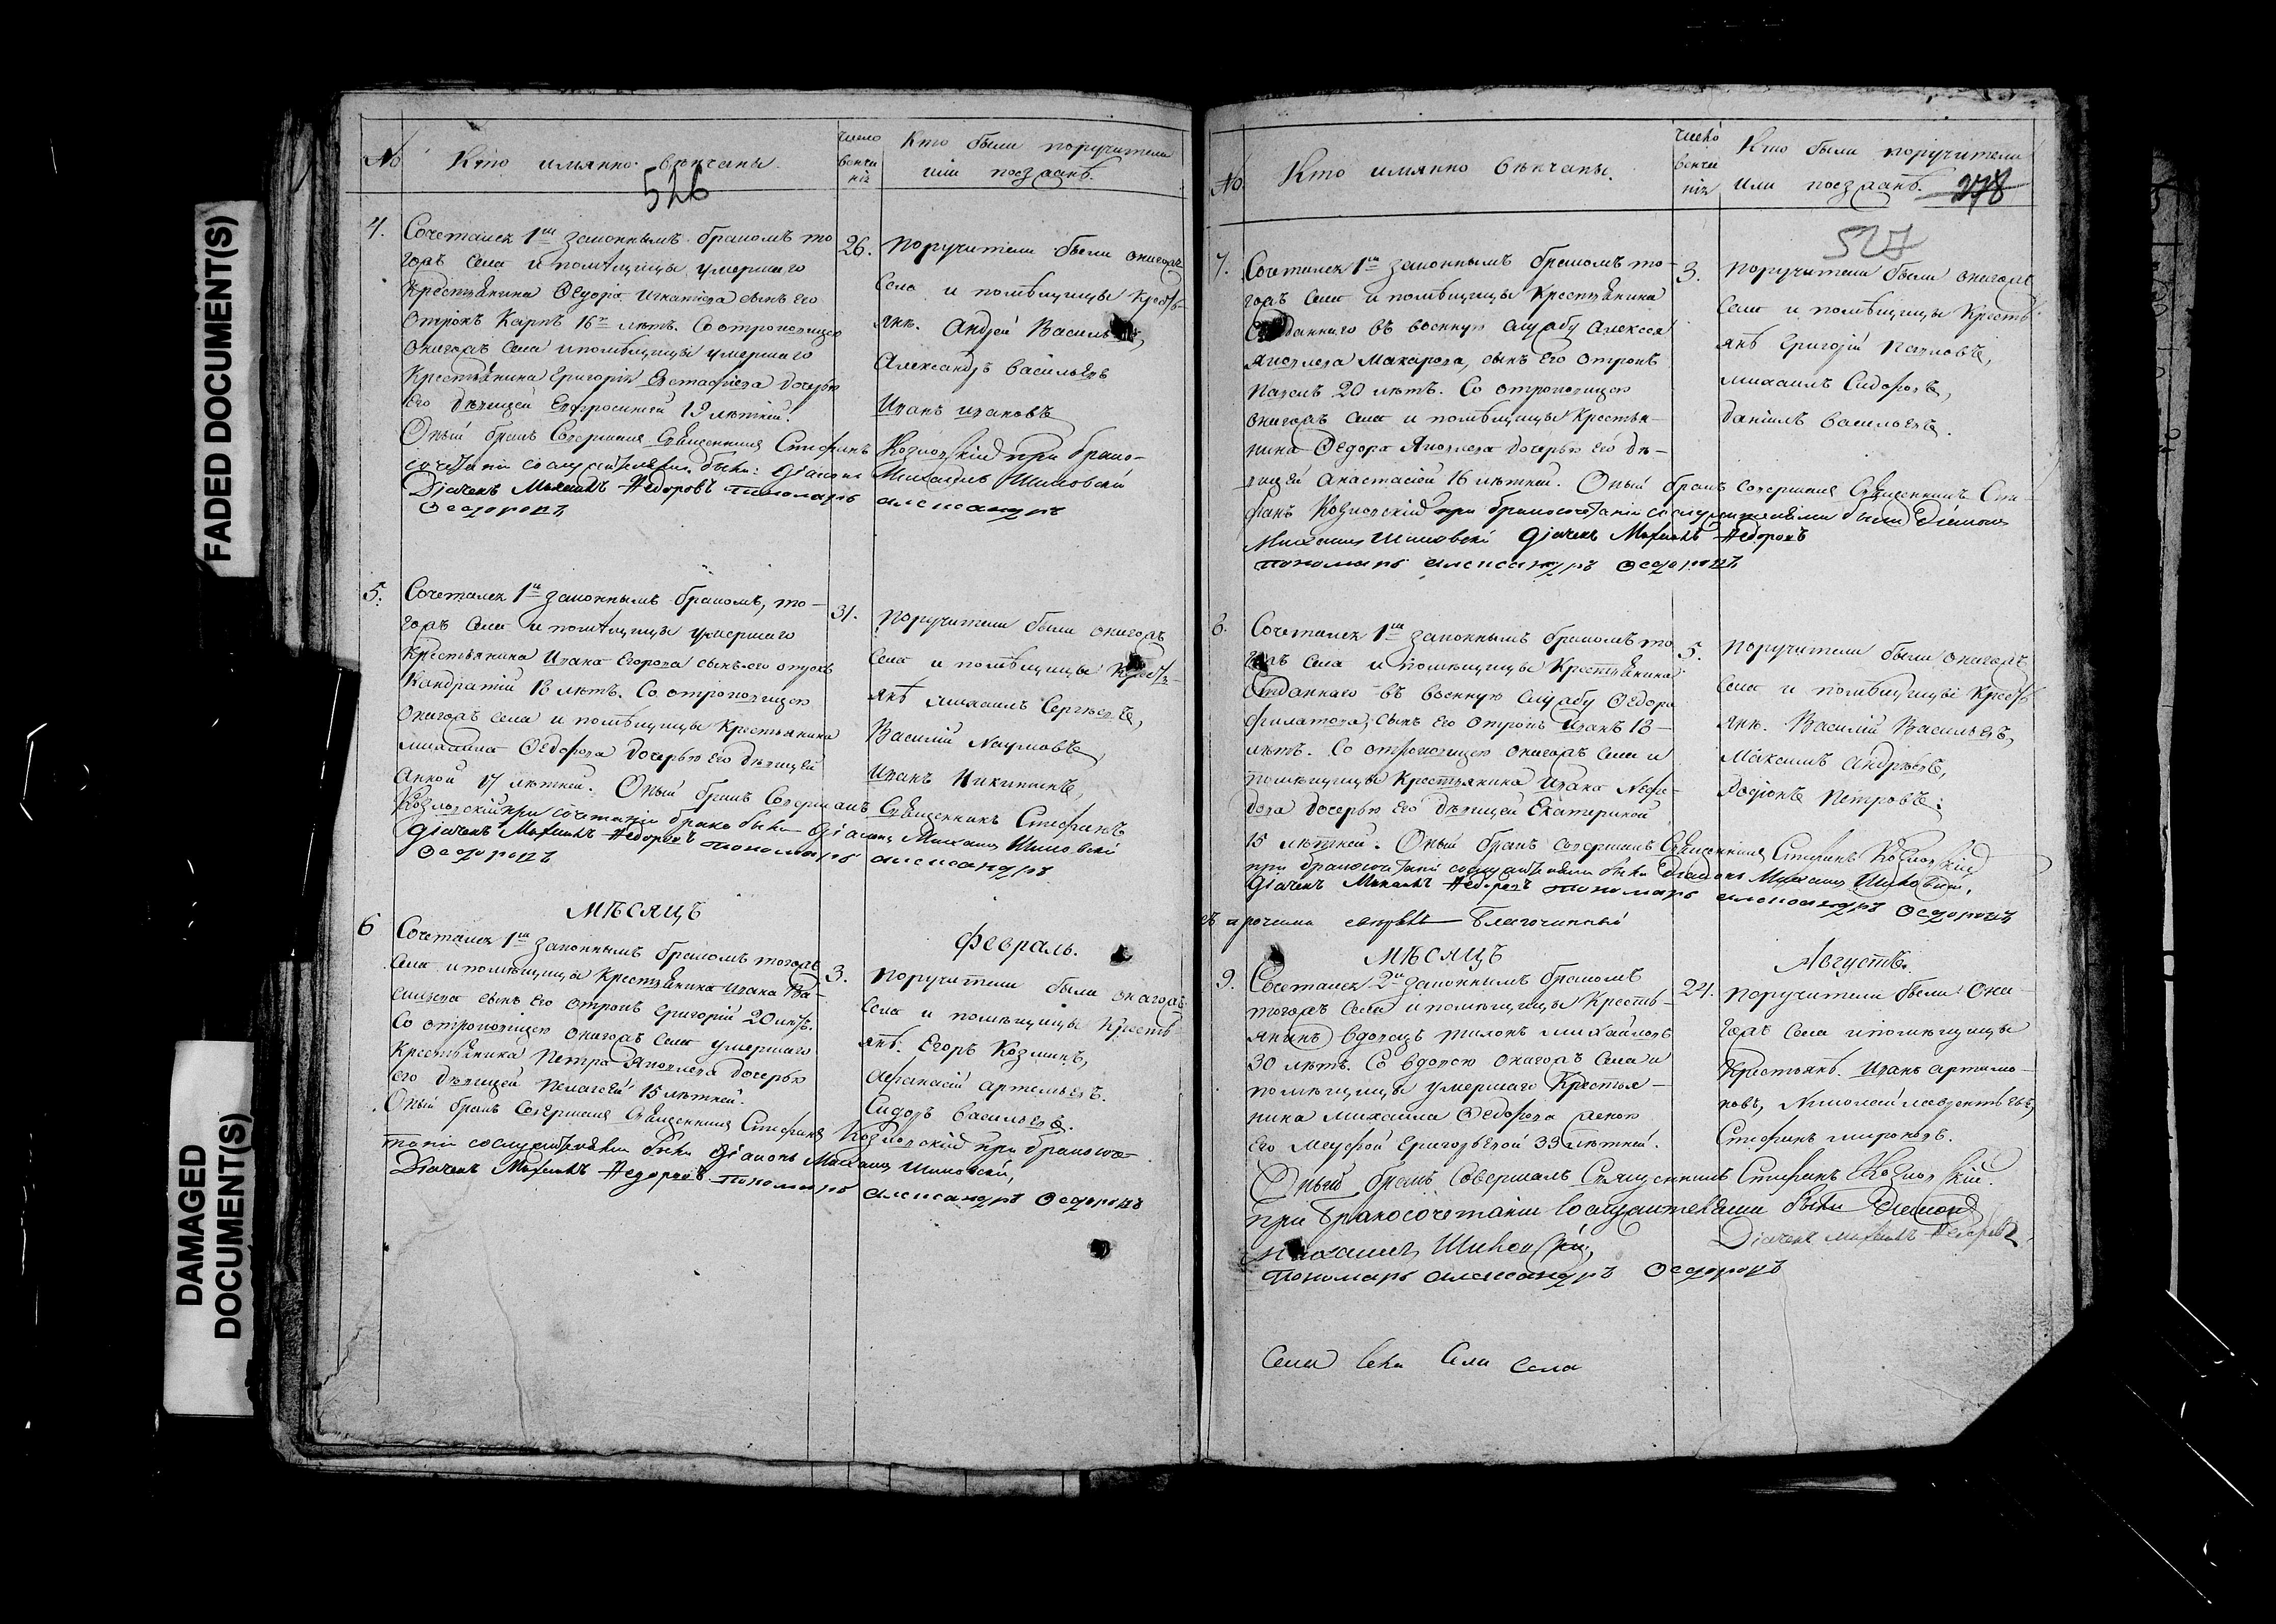 FADED DOCUMENT(S)
DAMAGED
DOCUMENT(S)
№
Кто имянно вѣнчаны.
526
число
венча
нія
Кто были поручители
или поезжанѣ.
4.
Сочетался 1мъ законнымъ бракомъ то
гожъ села и помѣщицы умершаго
крестьянина Ѳедора Игнатьева сынъ его
отрокъ Карпъ 16ти лѣтъ. Со отроковицею
онагожъ села и помѣщицы умершаго
крестьянина Григорія Евстафіева дочерью
его дѣвицей Евфросиніей 19 лѣтней.
Оный бракъ совершилъ Священникъ Стефанъ Козловскій при брако-
сочетаніи сослужителями были: Діаконъ Михаилъ Шиловскій
Дьячекъ Михаилъ Ѳедоровъ пономарь александръ
Ѳедоровъ
26.
поручители были онагожъ
села и помѣщицы кресть-
янѣ. Андрей Василь
Александръ Васильевъ
Иванъ Ивановъ
5.
Сочетался 1мъ законнымъ бракомъ, то-
гожъ села и помѣщицы умершаго
крестьянина Ивана Егорова сынъ его отрокъ
Кондратій 18 лѣтъ. Со отроковицею
онагожъ села и помѣщицы крестьянина
Михаила Ѳедорова дочерью его дѣвицей
Анной 17 лѣтней. Оный бракъ совершилъ Священникъ Стефанъ
Козловскій при сочетаніи брака были Діаконъ Михаилъ Шиловскій
Дьячекъ Михаилъ Ѳедоровъ пономарь александръ
Ѳедоровъ
31.
поручители были онагожъ
села и помѣщицы кресть-
янѣ Михаилъ Сергѣевъ,
Василій Наумовъ,
Иванъ Никитинъ,
Мѣсяцъ
Февраль.
6
Сочетался 1мъ законнымъ бракомъ тогожъ
села и помѣщицы крестьянина Ивана Ва-
сильева сынъ его отрокъ Григорій 20 лѣтъ.
Со отроковицею онагожъ села умершаго
крестьянина Петра Яковлева дочерью
его дѣвицей Пелагеей 15 лѣтней.
Оный бракъ совершилъ Священникъ Стефанъ Козловскій при бракосоче-
таніи сослужителями были Діаконъ Михаилъ Шиловскій,
Дьячекъ Михаилъ Ѳедоровъ пономарь александръ Ѳедоровъ
3.
поручители были онагожъ
села и помѣщицы кресть-
янѣ. Егоръ Козминъ,
Афанасій Артемьевъ.
Сидоръ Васильевъ.
№
Кто имянно вѣнчаны.
число
венча
нія
Кто были поручители
или поезжанѣ.
278
527
7.
Сочетался 1мъ законнымъ бракомъ то-
гожъ села и помѣщицы крестьянина
отданнаго въ военную службу Алексея
Яковлева Макарова, сынъ его отрокъ
Павелъ 20 лѣтъ. Со отроковицею
онагожъ села и помѣщицы крестья-
нина Ѳедора Яковлева дочерью его дѣ-
вицей Анастасіей 16 лѣтней. Оный бракъ совершилъ Священникъ Сте-
фанъ Козловскій при бракосочетаніи сослужителями были Діаконъ
Михаилъ Шиловскій Дьячекъ Михаилъ Ѳедоровъ
пономарь александръ Ѳедоровъ
3.
поручители были онагожъ
села и помѣщицы кресть-
янѣ Григорій Павловъ,
Михаилъ Сидоровъ,
Данилъ Васильевъ.
8.
Сочетался 1мъ законнымъ бракомъ то
гожъ села и помѣщицы крестьянина
отданнаго въ военную службу Ѳедора
Филатова, сынъ его отрокъ Иванъ 18-
лѣтъ. Со отроковицею онагожъ села и
помѣщицы крестьянина Ивана Нефе-
дова дочерью его дѣвицей Екатериной
15 лѣтней. Оный бракъ совершилъ Священникъ Стефанъ Козловскій
при бракосочетаніи сослужителями были Діаконъ Михаилъ Шиловскій,
Дьячекъ Михаилъ Ѳедоровъ пономарь александръ Ѳедоровъ
5.
поручители были онагожъ
села и помѣщицы кресть-
янѣ. Василій Васильевъ,
Максимъ Андрѣевъ,
Родіонъ Петровъ.
Благочинный
Мѣсяцъ
Августъ.
9.
Сочетался 2мъ законнымъ бракомъ
тогожъ села и помѣщицы кресть-
янинъ вдовецъ Тихонъ Михайловъ
30 лѣтъ. Со вдовою онагожъ села и
помѣщицы умершаго крестья-
нина Михаила Ѳедорова женою
его Марфой Григорьевой 33 лѣтней.
Оный бракъ совершилъ Священникъ Стефанъ Козловскій.
при бракосочетаніи сослужителями были Діаконъ
Михаилъ Шиловскій,
Дьячекъ Михаилъ Ѳедоровъ
пономарь александръ Ѳедоровъ
24.
поручители были она-
гожъ села и помѣщицы
крестьянѣ. Иванъ Артамо-
новъ, Николай Лаврентьевъ,
Стефанъ Мироновъ.
Села села Села Села